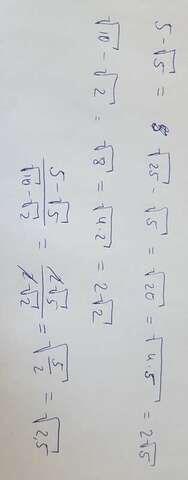 5-√5 = √25-√5 = √20 = √4·5 = 2√5
√10-√2 = √8 = √4·2 = 2√2
(5-√5)/(√10-√2) = (2√5)/(2√2) = √(5/2) = √2,5